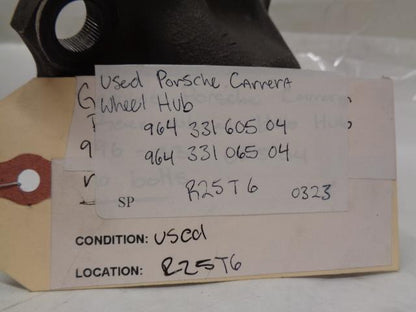 Used Porsche Carrera
Wheel Hub
964 331 605 04
964 331 065 04
SP R25T6 0323
CONDITION: used
LOCATION: R25T6